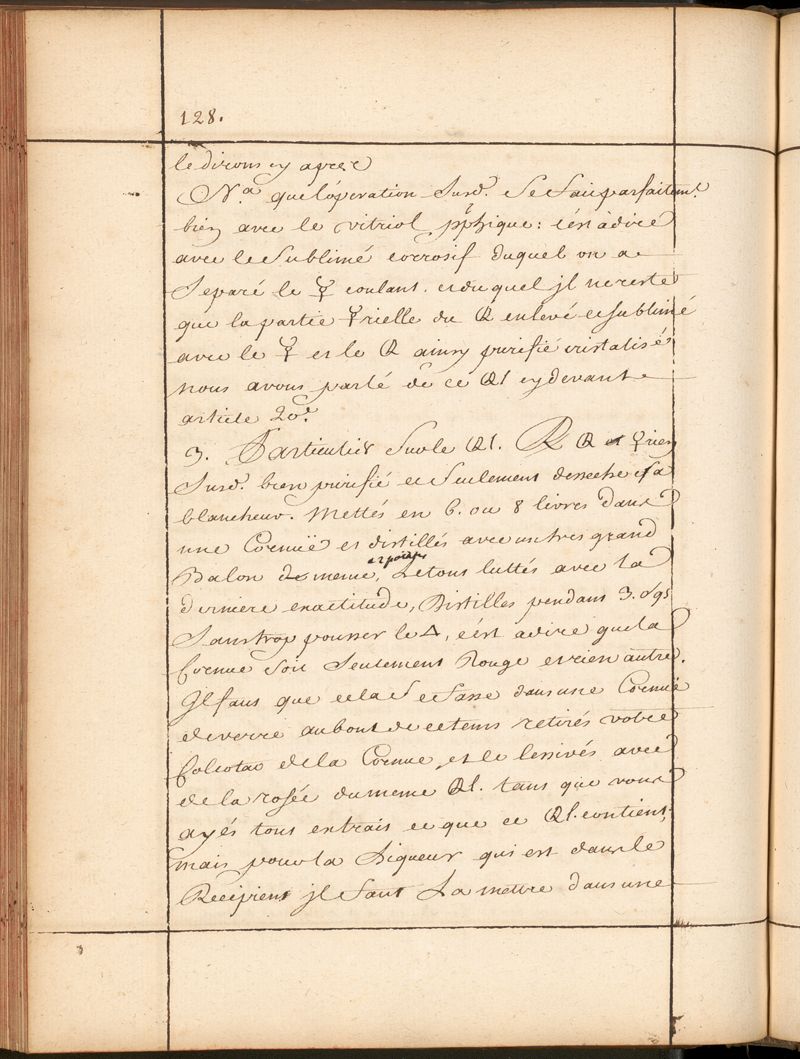 128.
le dirons cy apres
N.a que l'operation Susd. Se fait parfaitemt.
bien avec le vitriol pphique: c'est à dire
avec le Sublimé corrosif duquel on a
Separé le ☿ coulant. et duquel jl ne reste
que la partie ☿rielle du 🜖 enlevé et sublimé
avec le ☿ et le 🜖 ainsy purifié cristalisé
nous avons parlé de ce 🜖l cy devant
article 20e
3. Particulier Sur le 🜖l. ℞ 🜖 et ☿rien
Susd. bien purifié et Seulement desseche a sa
blancheur. Mettés en 6. ou 8 livres dans
une Cornuë et distillés avec un tres grand
Balon de meme, et epais Le tous luttés avec la
derniere exactitude, Distilles pendant 3.
Sans trop pousser le △, c'est a dire que la
Cornue Soit Seulement Rouge et rien autre.
Jl faut que cela Se Fasse dans une Cornuë
de verre au bout de ce tems retirés votre
Colcotar de la Cornue, et le lessivés avec
de la rosée du meme 🜖l. tant que vous
ayés tout extrait ce que ce 🜖l. contient,
mais pour la Liqueur qui est dans le
Recipient jl faut La mettre dans une